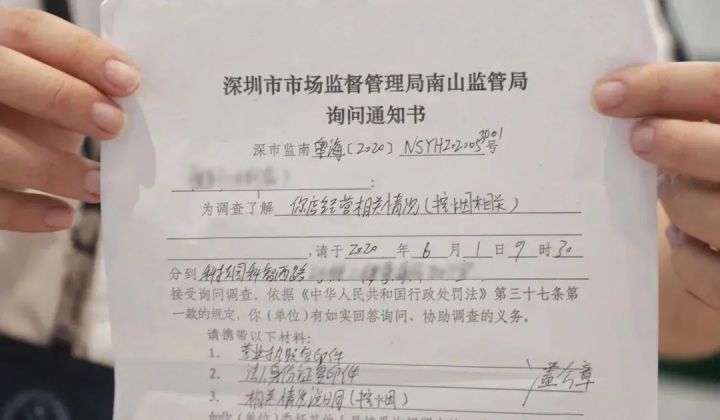 深圳市市场监督管理局南山监管局
询问通知书
深市监南粤海〔2020〕NSYHZ2020053001号
:
为调查了解 你店经营相关情况(控烟相关)
,请于2020年6月1日9时30
分到科技园科智西路
接受询问调查。依据《中华人民共和国行政处罚法》第三十七条第
一款的规定,你(单位)有如实回答询问、协助调查的义务。
请携带以下材料:
1. 营业执照复印件
2. 法人身份证复印件 盖公章
3. 相关情况说明(控烟)